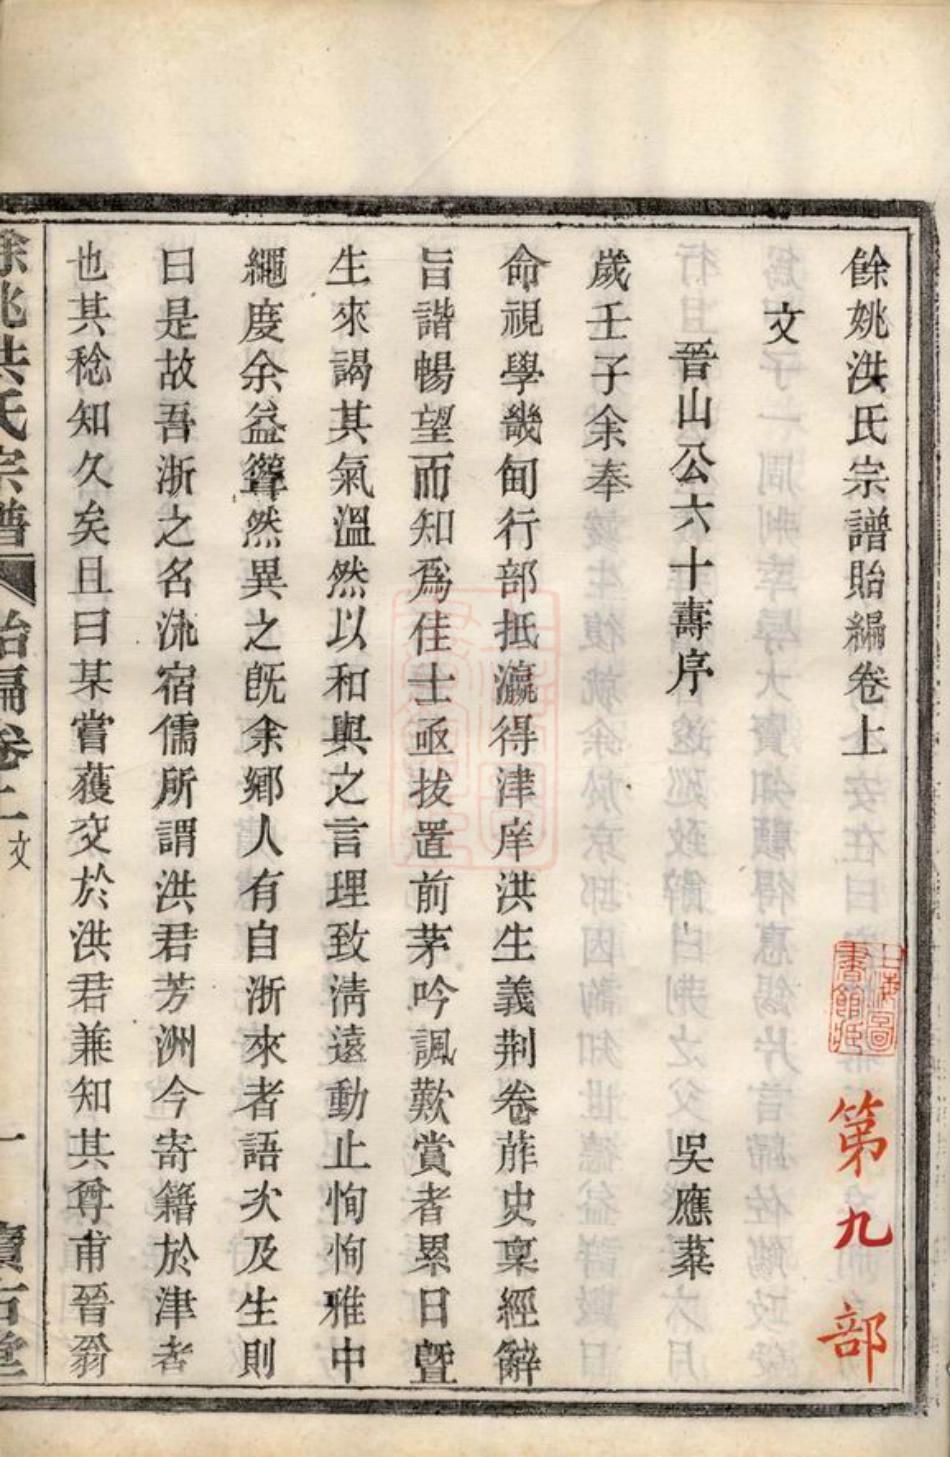 餘姚洪氏宗譜貽編卷上
文
晉山公六十壽序 吳應棻
歲壬子余奉
命視學畿甸行部抵瀛得津庠洪生義荆卷蓙史稟經辭
旨諧暢望而知爲佳士亟拔置前茅吟諷歎賞者累日曁
生來謁其氣溫然以和與之言理致淸遠動止恂恂雅中
繩度余益聳然異之旣余鄕人有自浙來者語次及生則
曰是故吾浙之名流宿儒所謂洪君芳洲今寄籍於津者
也其稔知久矣且曰某嘗獲交於洪君兼知其尊甫晉翁
餘姚洪氏宗譜 貽編卷上 文 一 寶右堂
上海圖書館藏
第九部